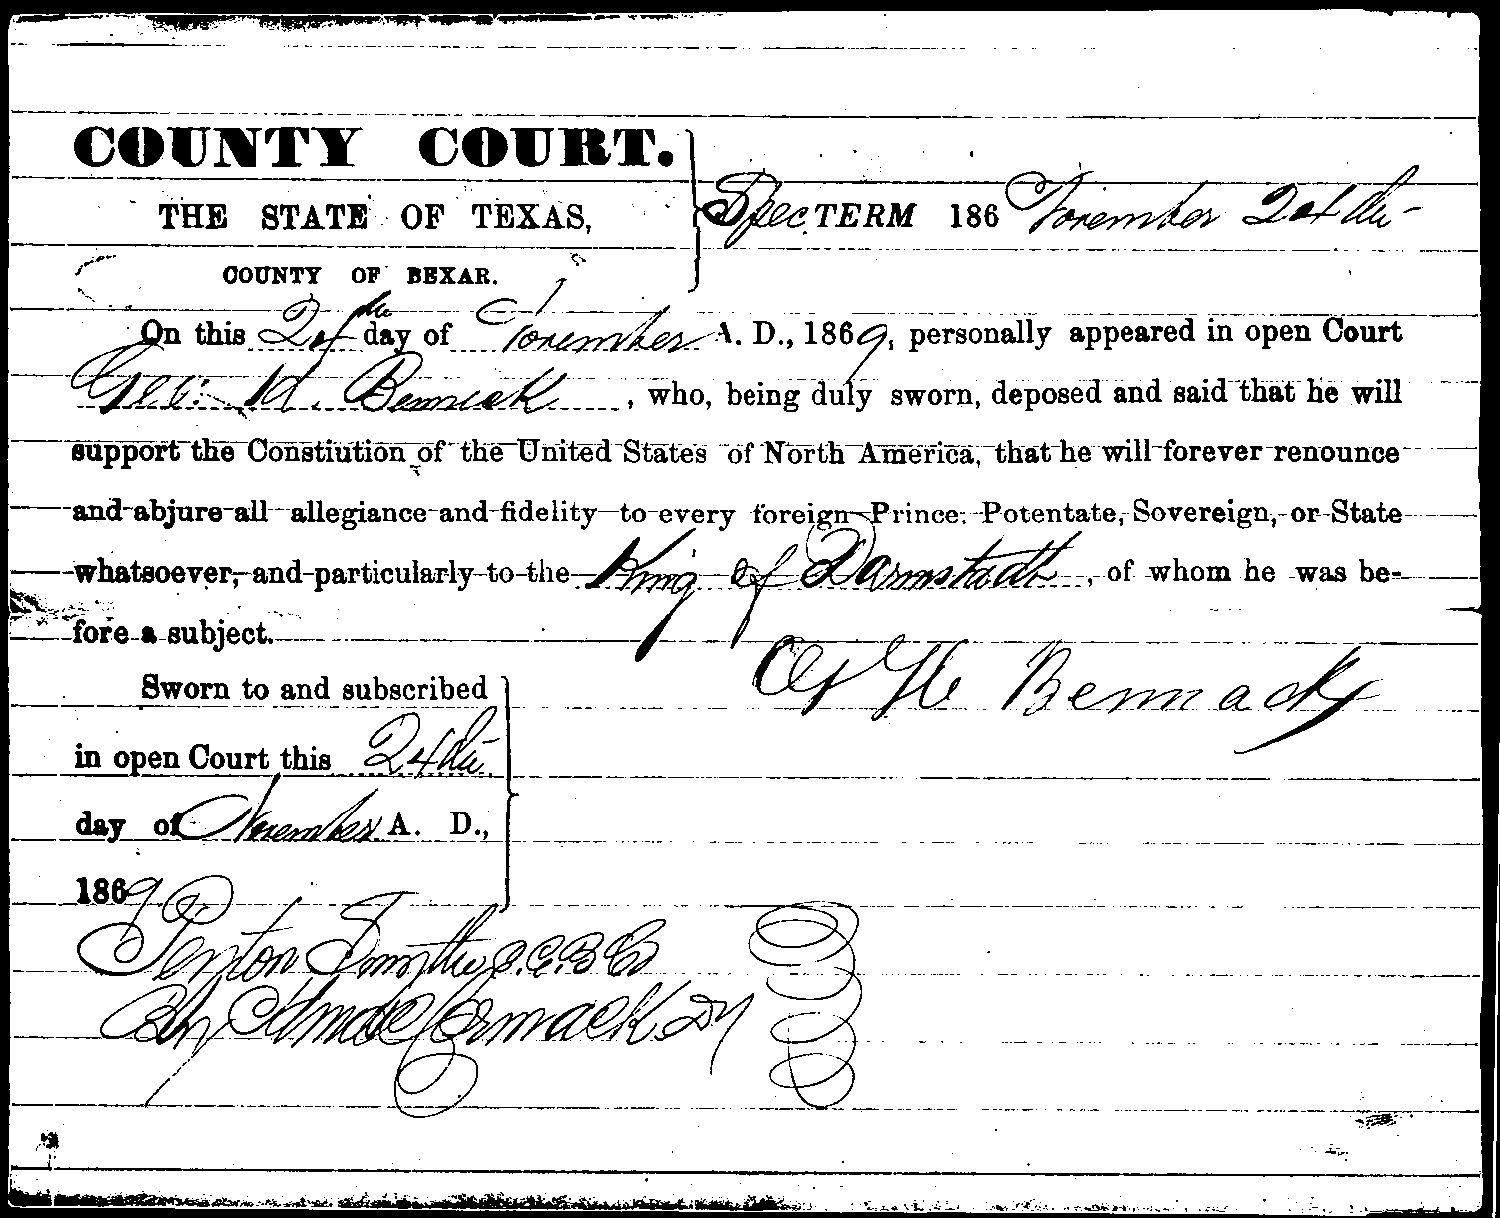 COUNTY COURT.
THE STATE OF TEXAS,
COUNTY OF BEXAR.
Spec. TERM 186 November 24th
On this 24th day of November A. D., 1869, personally appeared in open Court
Geo. H. Bennack, who, being duly sworn, deposed and said that he will
support the Constiution of the United States of North America, that he will forever renounce
and abjure all allegiance and fidelity to every foreign Prince. Potentate, Sovereign, or State
whatsoever, and particularly to the King of Darmstadt, of whom he was be-
fore a subject.
H Bennack
Sworn to and subscribed
in open Court this 24th
day of November A. D.,
1869
Penton Smythe C.C.B Co
By McCormack Dy